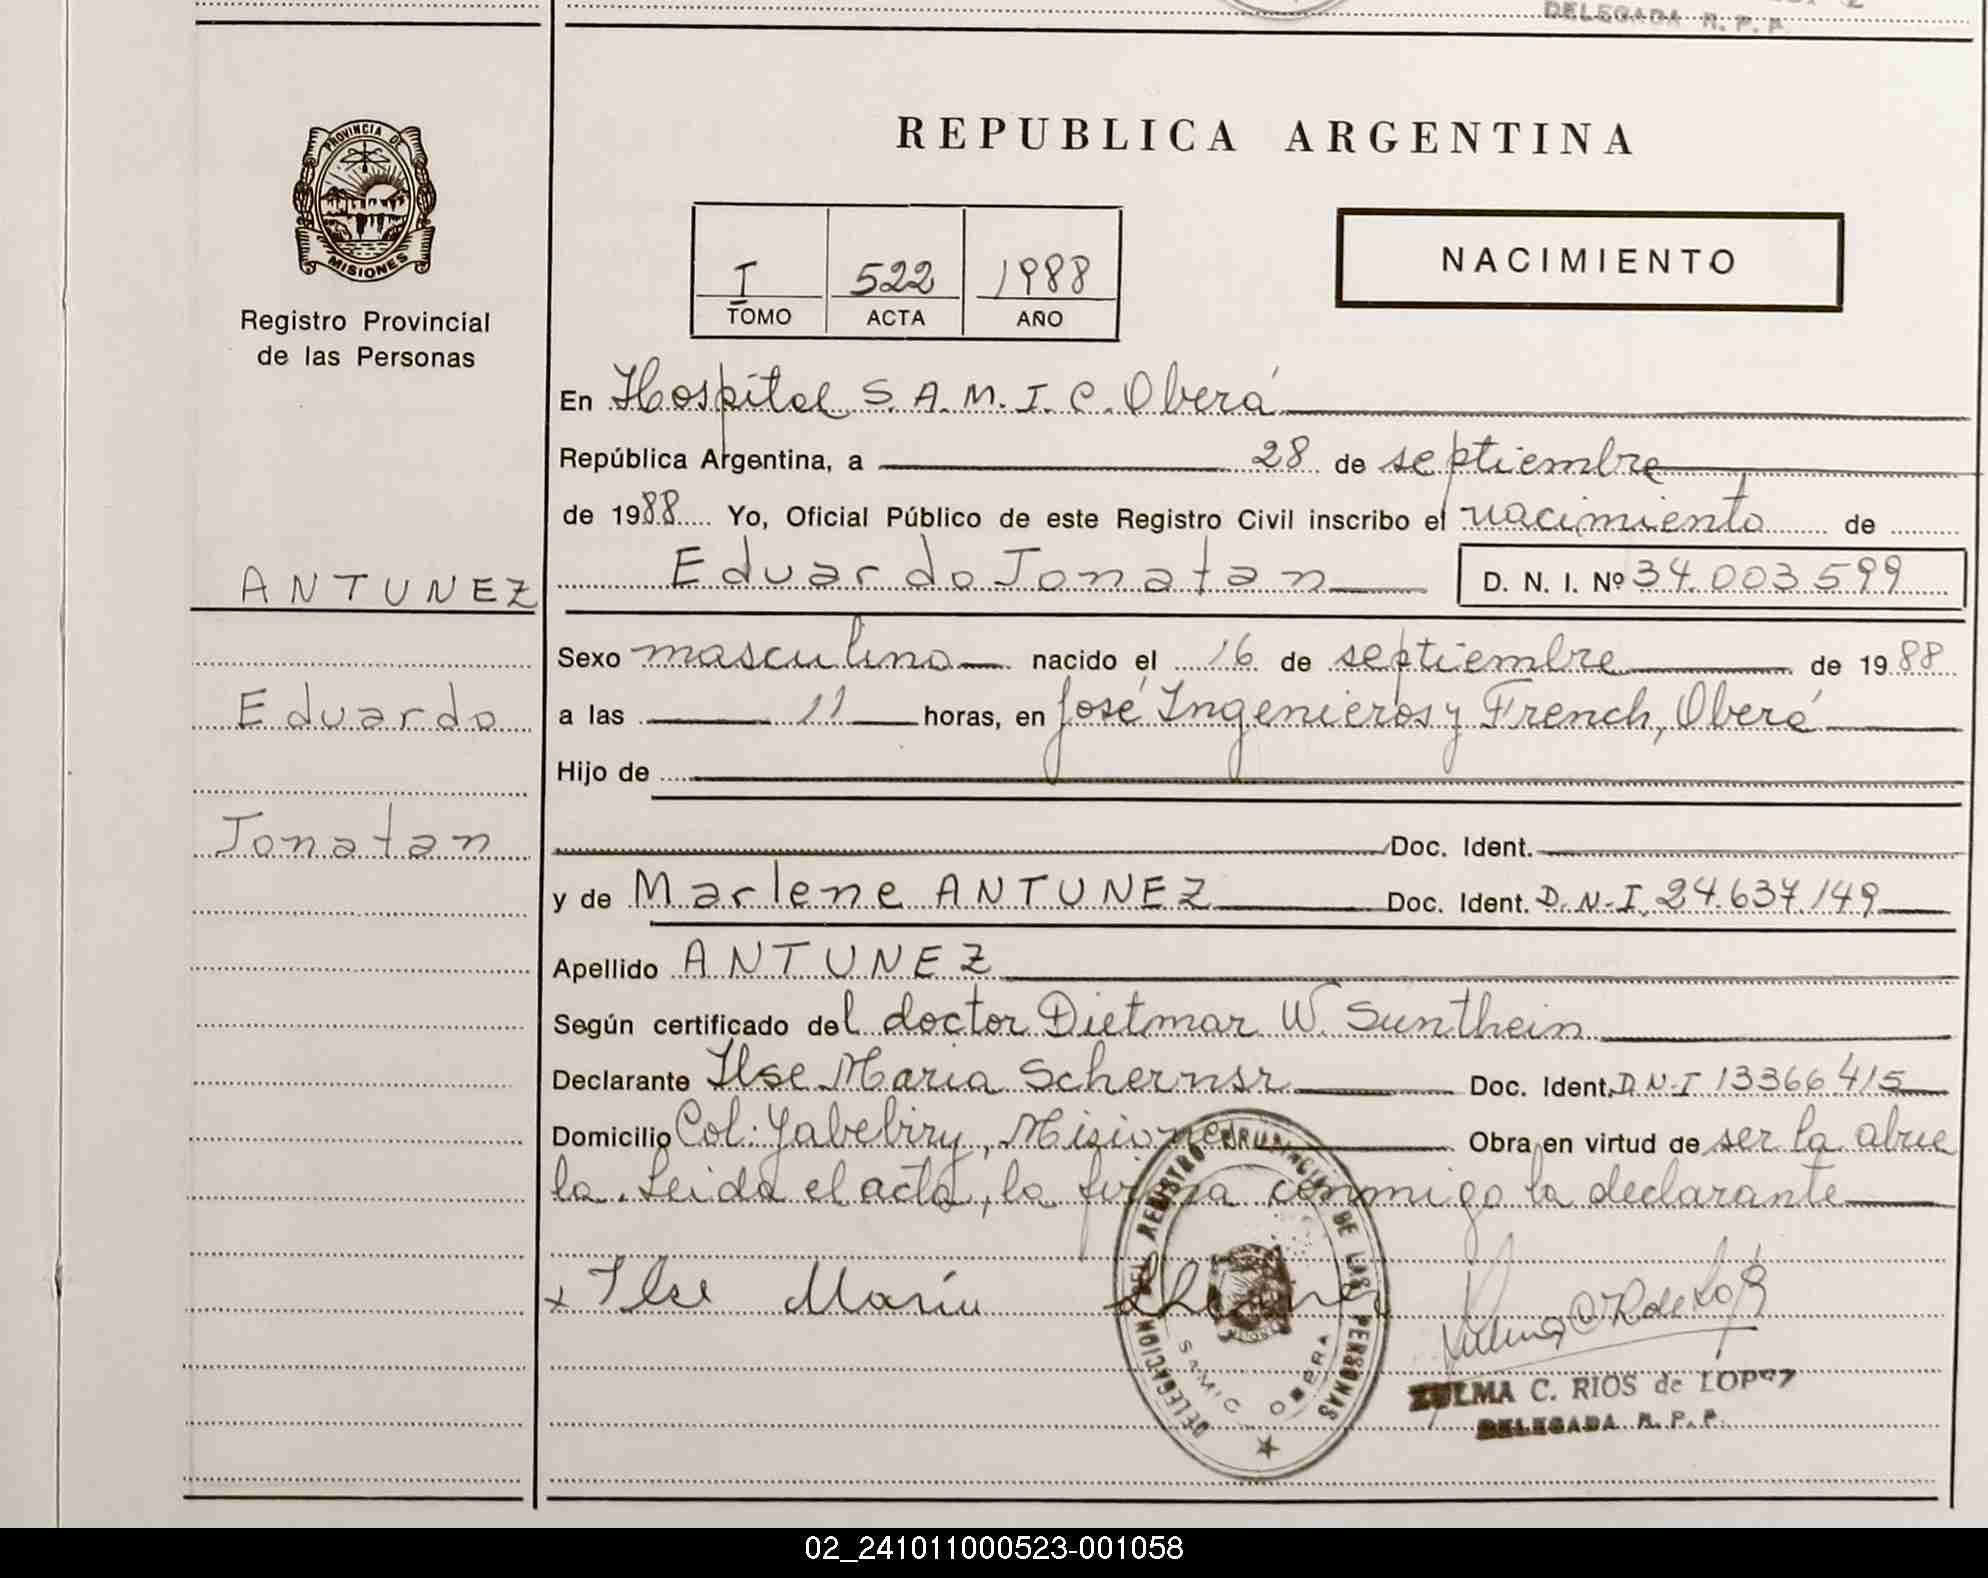 DELEGADA R. P. P.
PROVINCIA DE
MISIONES
Registro Provincial
de las Personas
REPUBLICA ARGENTINA
I 522 1988
TOMO ACTA AÑO
NACIMIENTO
En Hospital S.A.M.I.C. Oberá
República Argentina, a 28 de septiembre
de 1988 Yo, Oficial Público de este Registro Civil inscribo el nacimiento de
ANTUNEZ
Eduardo Jonatan D. N. I. Nº 34.003.599
Sexo masculino nacido el 16 de septiembre de 1988
Eduardo
a las 11 horas, en José Ingenieros y French, Oberá
Hijo de
Jonatan
Doc. Ident.
y de Marlene ANTUNEZ Doc. Ident. D.N.I. 24.637.149
Apellido ANTUNEZ
Según certificado del doctor Dietmar W. Sunthein
Declarante Ilse Maria Schernsr Doc. Ident. D.N.I 13366415
Domicilio Col. Yabebiry, Misiones Obra en virtud de ser la abue
la. Leida el acta, la firma conmigo la declarante
x Ilse María
DELEGACION DEL REGISTRO PROVINCIAL DE LAS PERSONAS
SAMIC OBERA
ZULMA C. RIOS de LOPEZ
DELEGADA R. P. P.
02_241011000523-001058